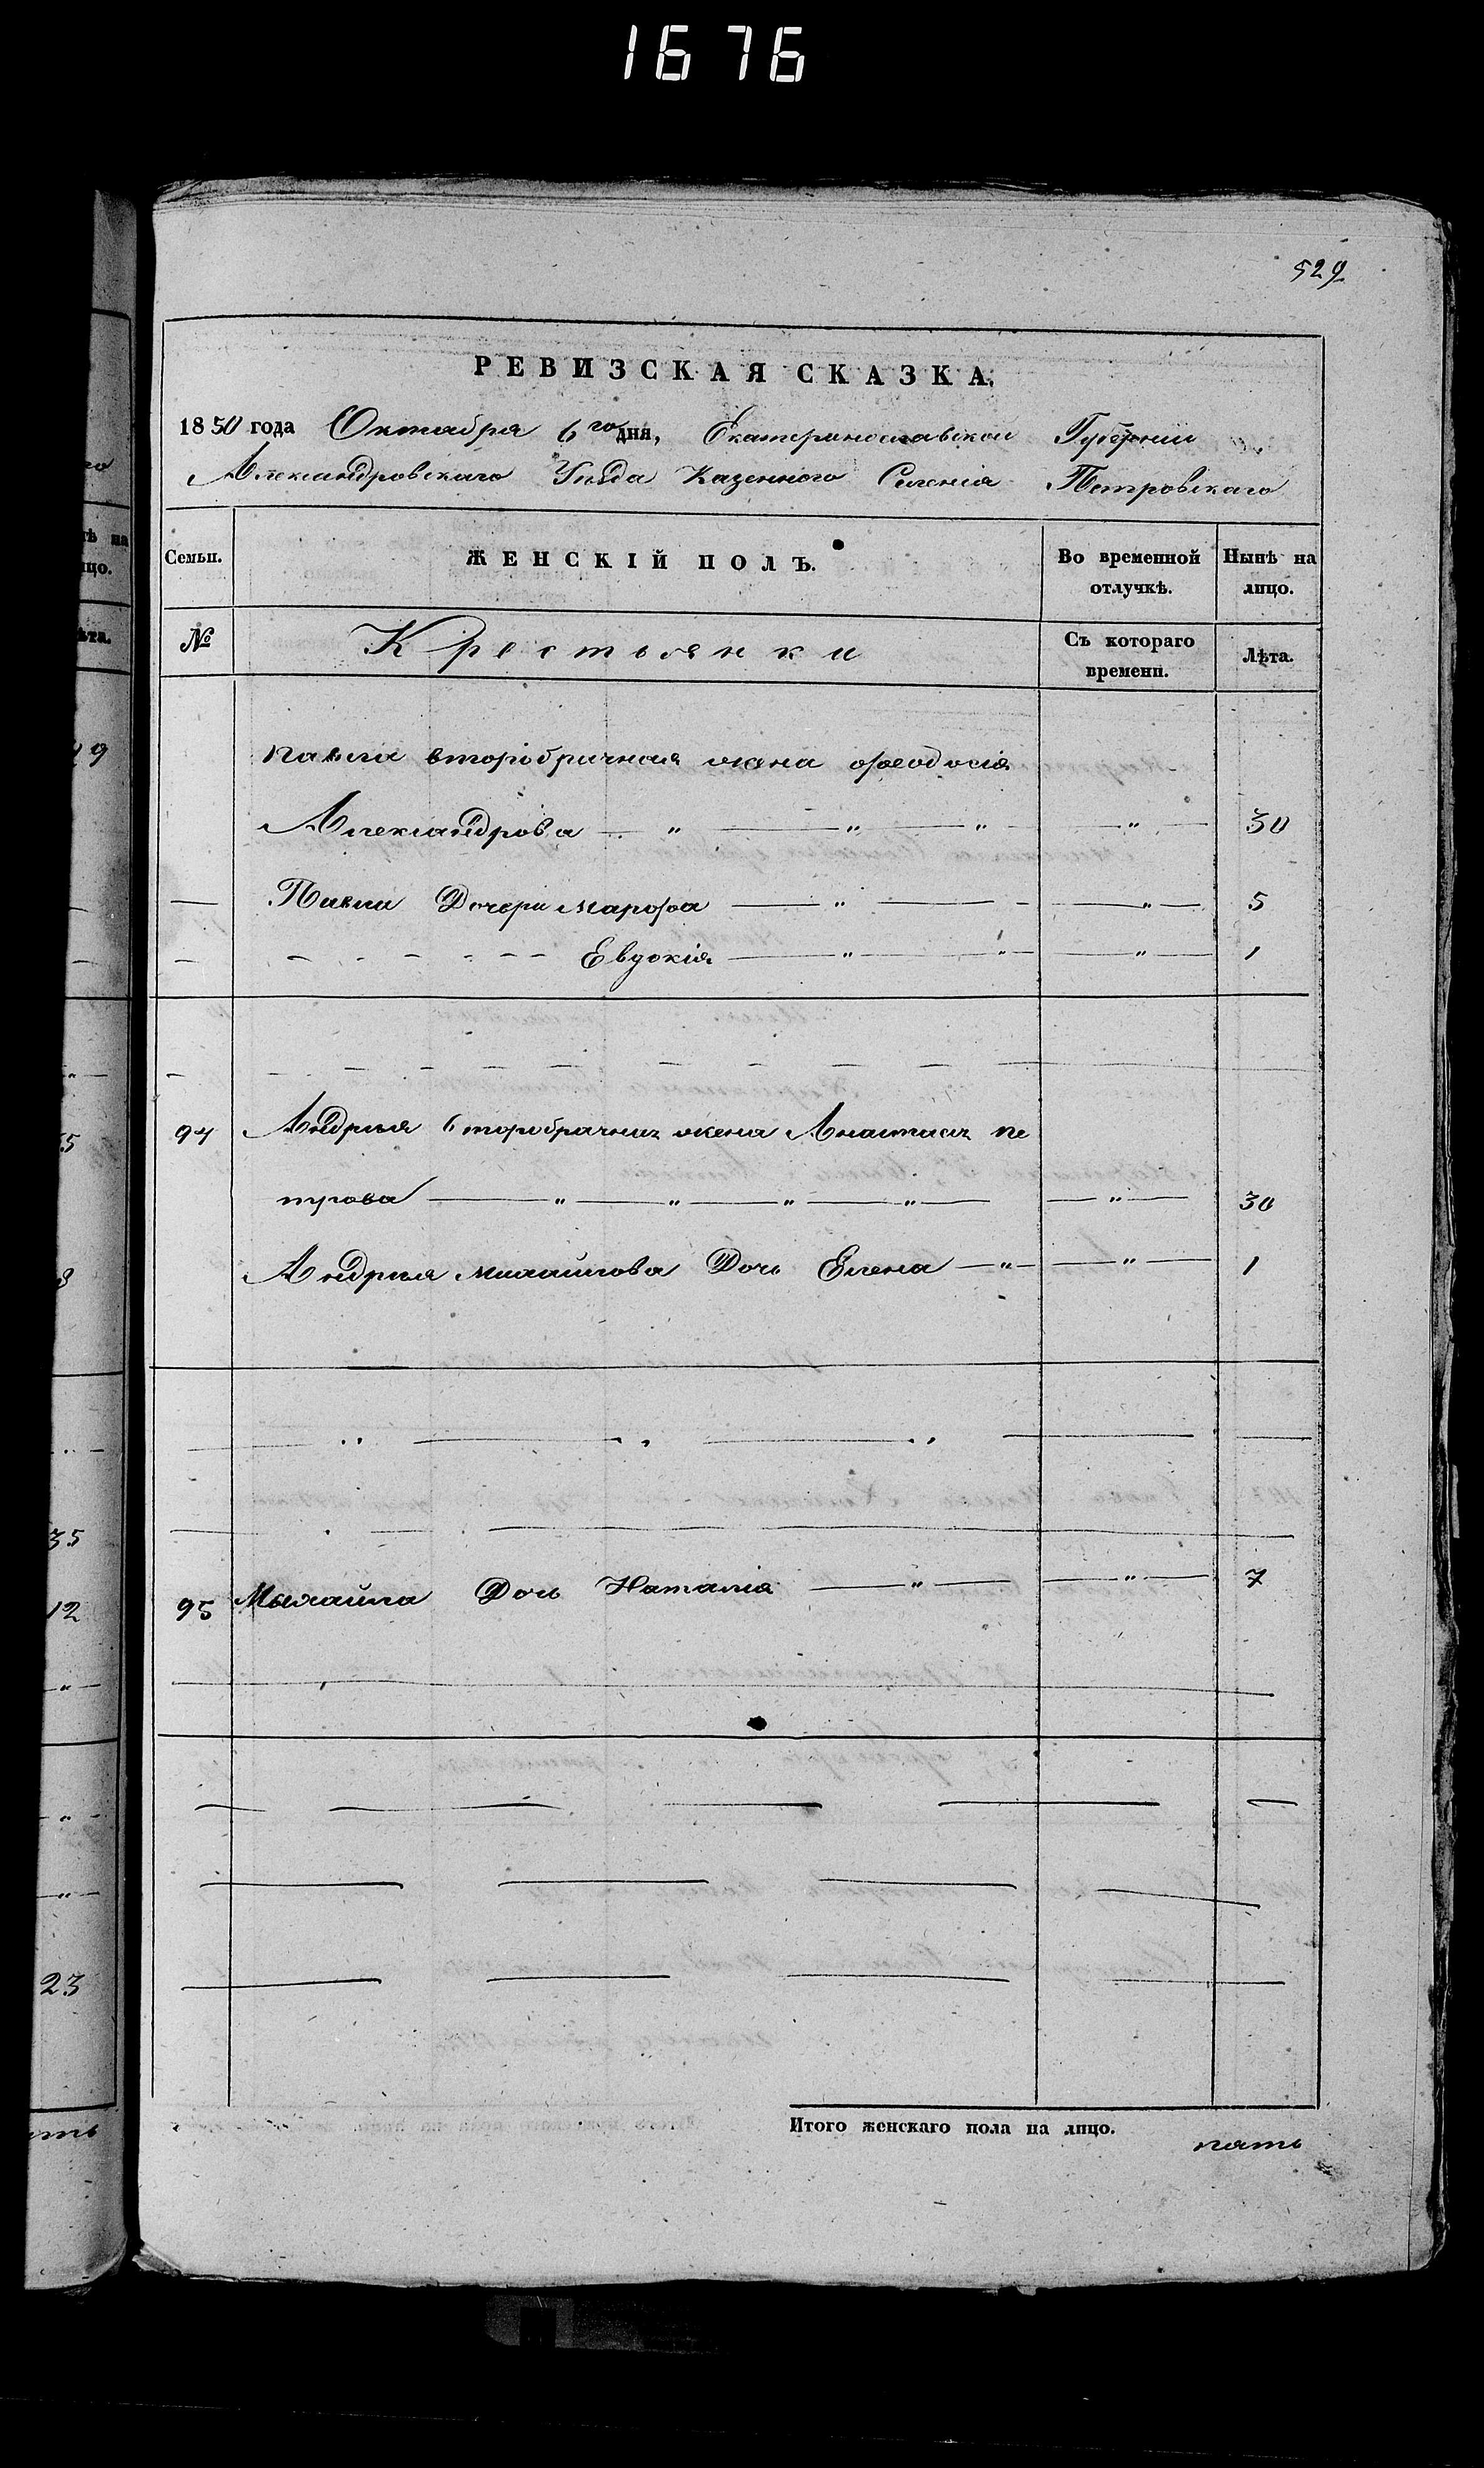 1676
529
РЕВИЗСКАЯ СКАЗКА.
1850 года Октября 6го дня, Екатеринославской Губернии
Александровского Уезда Казенного Селенія Петровскаго
Семьи. ЖЕНСКІЙ ПОЛЪ. Во временной отлучкѣ. Нынѣ на лицо.
№ Крестьянки Съ котораго времени. Лѣта.
Павла второбрачная жена Феодосія
Александрова — " — " — " — " — 30
— Павла Дочери Марфа — " — " — 5
— Евдокія — " — " — " — 1
94 Андрея второбрачная жена Анастасія Пе
трова — " — " — " — " — " — 30
Андрея Михайлова Дочь Елена — " — " — 1
95 Михайла Дочь Наталія — " — " — 7
Итого женскаго пола на лицо. пять
го
тѣ на
ицо.
ѣта.
49
5
8
35
12
23
ять